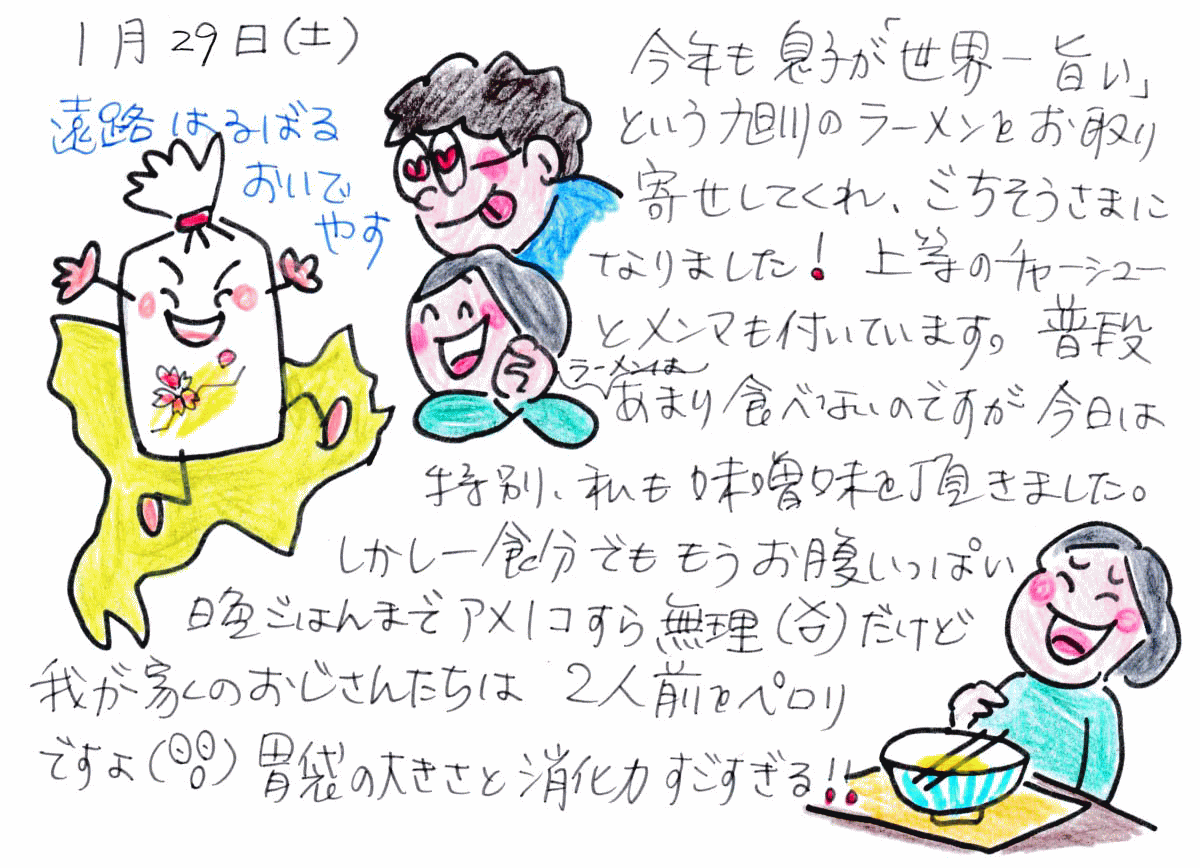 1月29日(土)
遠路はるばる
おいで
やす
今年も息子が「世界一旨い」
という旭川のラーメンをお取り
寄せしてくれ、ごちそうさまに
なりました! 上等のチャーシュー
とメンマも付いています。普段
ラーメンは
あまり食べないのですが今日は
特別、私も味噌味を頂きました。
しかし一食分でももうお腹いっぱい
晩ごはんまでアメ1コすら無理(笑)だけど
我が家のおじさんたちは 2人前をペロリ
ですよ 胃袋の大きさと消化力すごすぎる!!